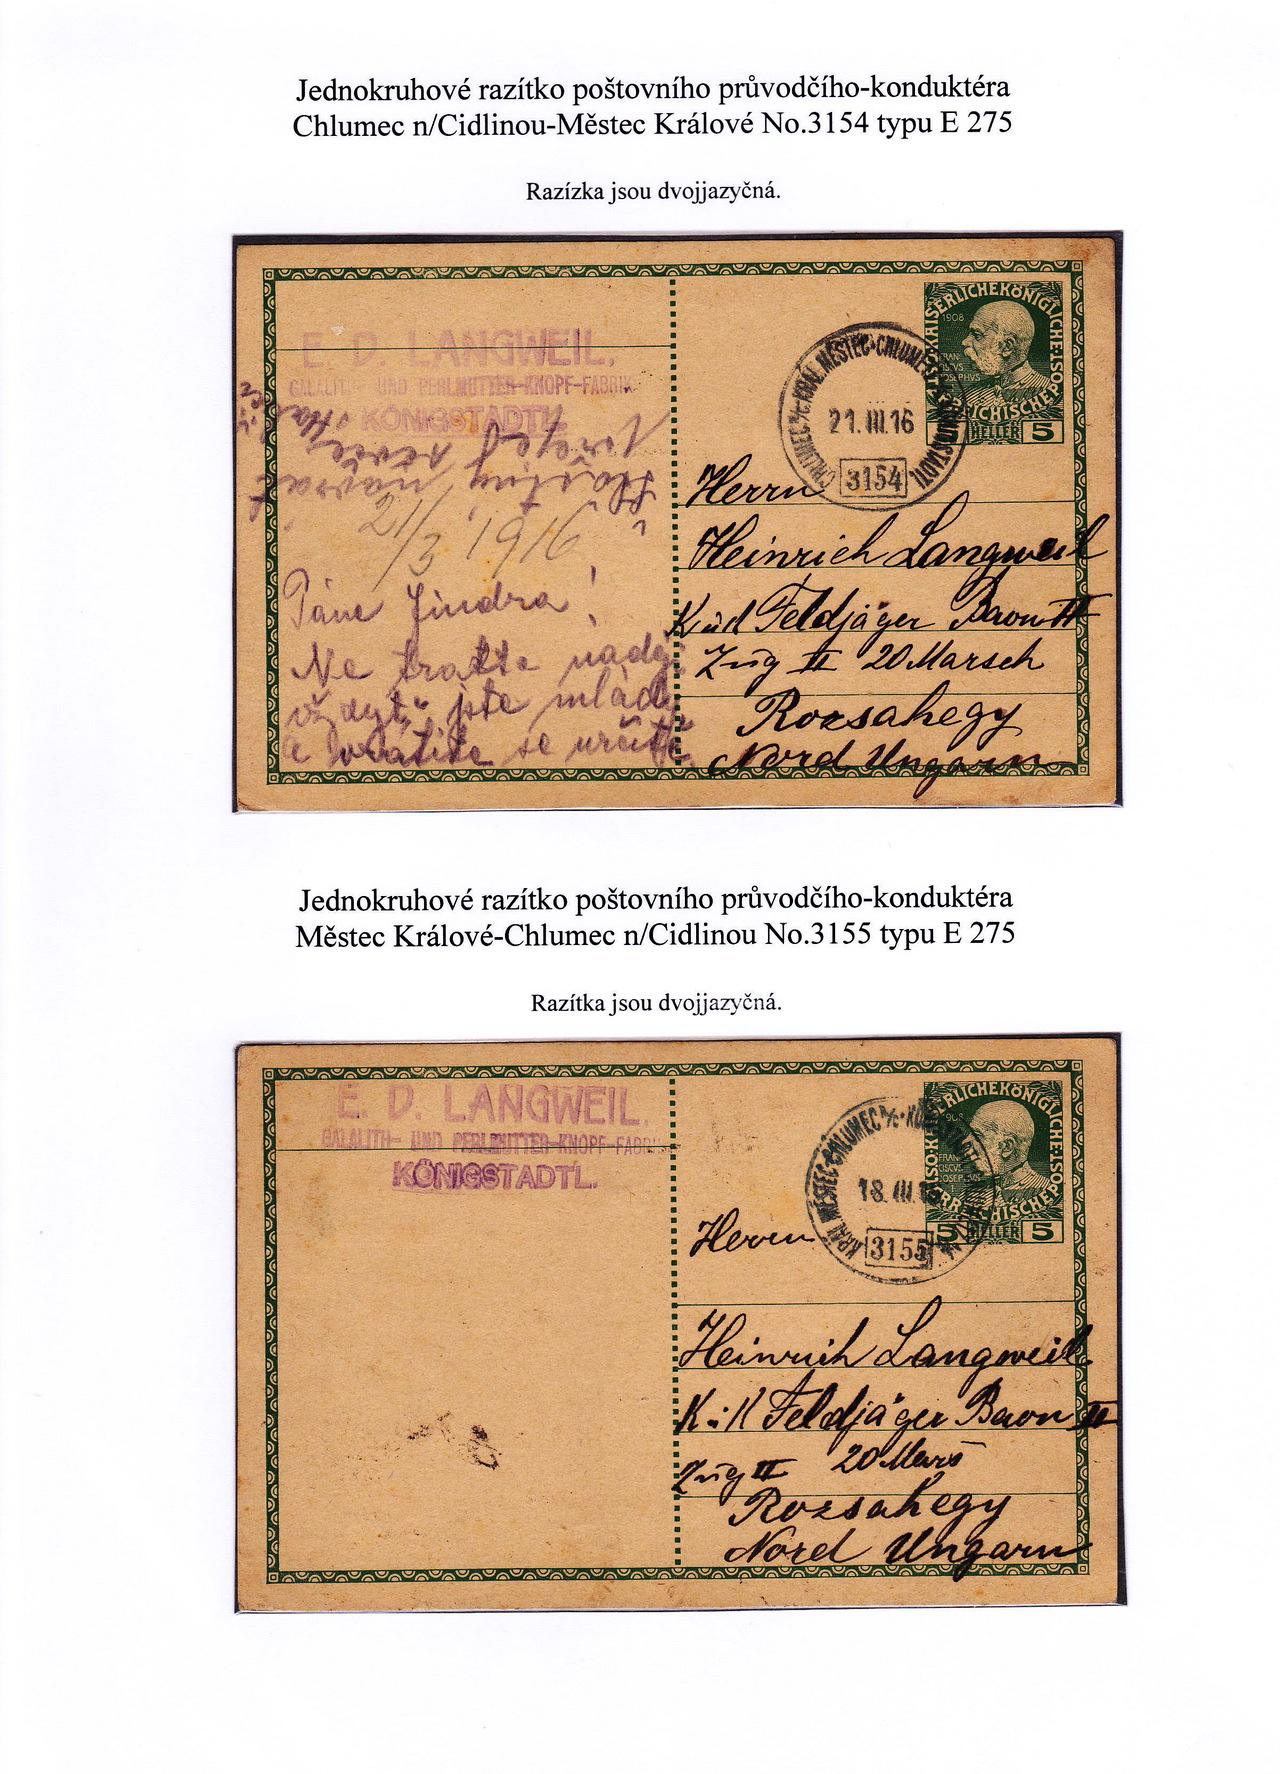 Jednokruhové razítko poštovního průvodčího-konduktéra
Chlumec n/Cidlinou-Městec Králové No.3154 typu E 275
Razízka jsou dvojjazyčná.
E. D. LANGWEIL,
GALALITH- UND PERLMUTTER-KNOPF-FABRIK
KÖNIGSTADTL.
Šťastný návrat
21/3 1916
Páne Jindra!
Ne traťte naděj
vždyť jste mladý
a vrátíte se určitě
KAISERLICHE KÖNIGLICHE
1908
HELLER 5
CHLUMEC n/c-KRÁL. MĚSTEC-CHLUMEC
21.III.16
3154
Herrn
Heinrich Langweil
K u K Feldjäger Baon II
Zug II 20 Marsch
Rozsahegy
Nord Ungarn
Jednokruhové razítko poštovního průvodčího-konduktéra
Městec Králové-Chlumec n/Cidlinou No.3155 typu E 275
Razítka jsou dvojjazyčná.
E. D. LANGWEIL,
GALALITH- UND PERLMUTTER-KNOPF-FABRIK
KÖNIGSTADTL.
1908
5 HELLER 5
KRÁL. MĚSTEC-CHLUMEC n/c-
18.III.16
3155
Herrn
Heinrich Langweil
K u K Feldjäger Baon II
Zug II 20 Mars
Rozsahegy
Nord Ungarn